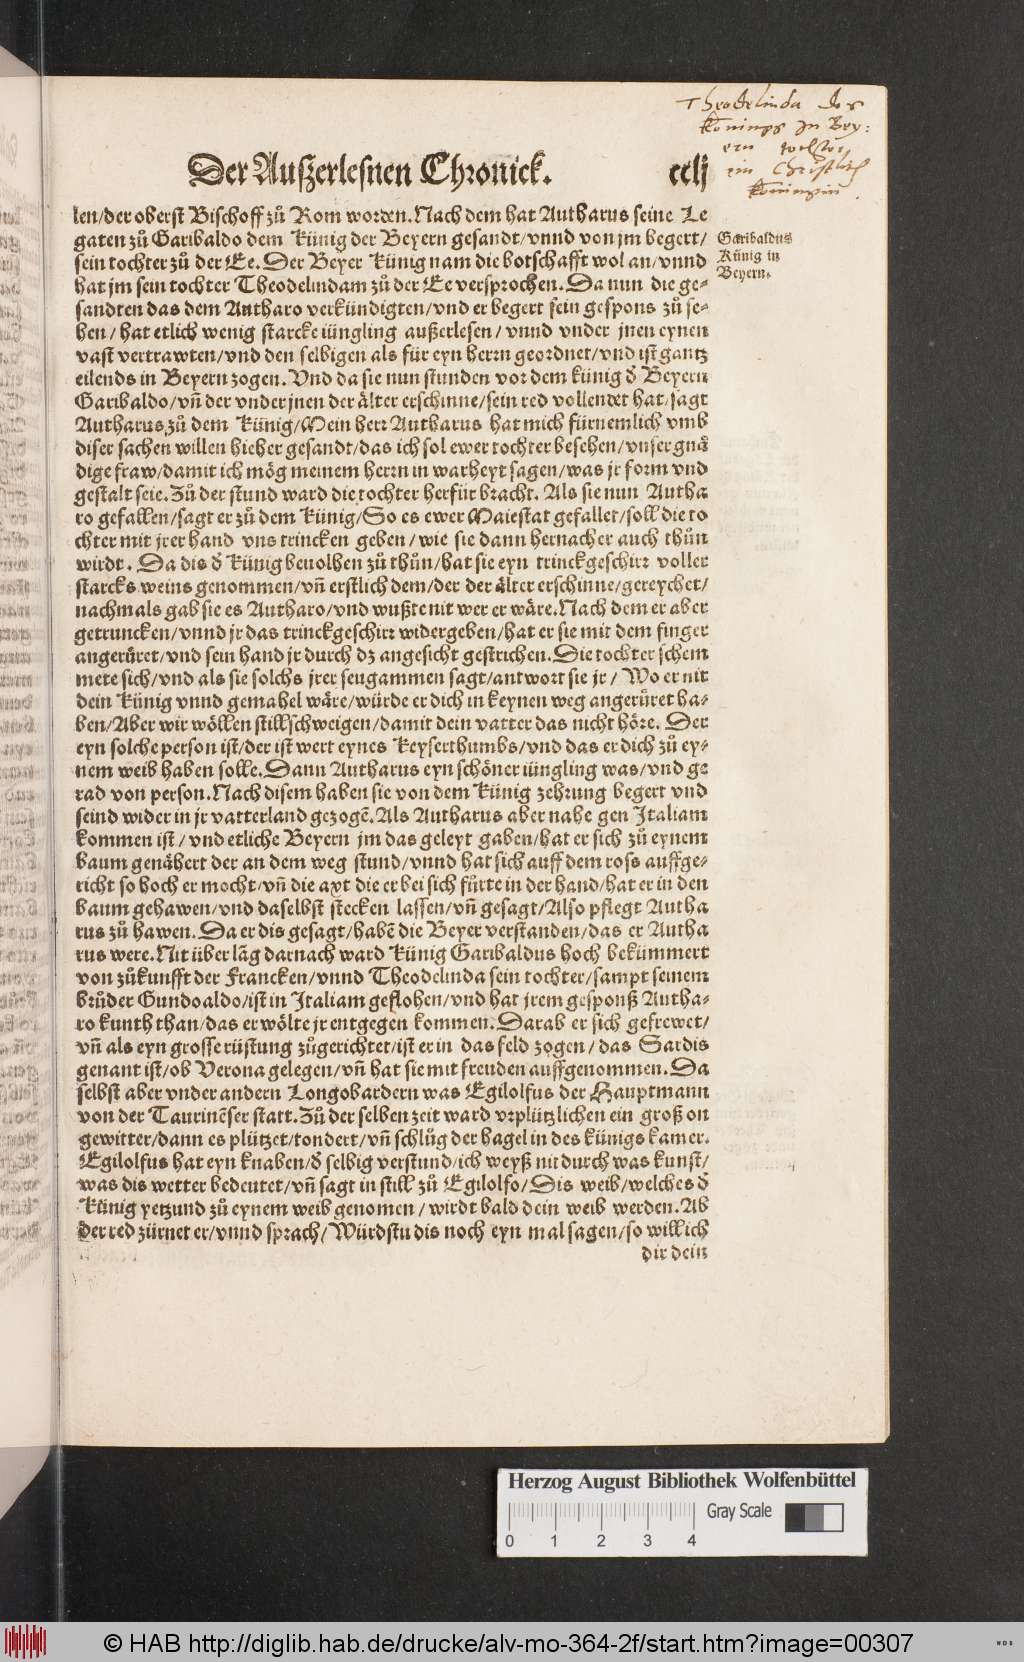 Theodelinda des
Konings in Bey:
ern tochter
ein Christlich
Koningin
Der Außerlesnen Chronick. cclj
len/der oberst Bischoff zů Rom worden. Nach dem hat Autharus seine Le
gaten zů Garibaldo dem Künig der Beyern gesandt/vnnd von jm begert/
sein tochter zů der Ee. Der Beyer Künig nam die botschafft wol an/vnnd
hat jm sein tochter Theodelindam zů der Ee versprochen. Da nun die ge-
sandten das dem Antharo verkündigten/vnd er begert sein gespons zů se-
hen/hat etlich wenig starcke iüngling außerlesen/vnnd vnder jnen eynen
vast vertrawten/vnd den selbigen als für eyn herrn geordnet/vnd ist gantz
eilends in Beyern zogen. Vnd da sie nun stunden vor dem künig d̕ Beyern
Garibaldo/vñ der vnder jnen der älter erschinne/sein red vollendet hat/sagt
Autharus zů dem Künig/Mein herr Autharus hat mich fürnemlich vmb
diser sachen willen hieher gesandt/das ich sol ewer tochter besehen/vnser gnä
dige fraw/damit ich mög meinem herrn in warheyt sagen/was jr form vnd
gestalt seie. Zů der stund ward die tochter herfür bracht. Als sie nun Autha
ro gefallen/sagt er zů dem Künig/So es ewer Maiestat gefallet/soll die to
chter mit jrer hand vns trincken geben/wie sie dann hernacher auch thůn
wirdt. Da dis d̕ Künig beuolhen zů thůn/hat sie eyn trinckgeschirr voller
starcks weins genommen/vñ erstlich dem/der der älter erschinne/gereychet/
nachmals gab sie es Autharo/vnd wußte nit wer er wäre. Nach dem er aber
getruncken/vnnd jr das trinckgeschirr widergeben/hat er sie mit dem finger
angerůret/vnd sein hand jr durch dz angesicht gestrichen. Die tochter schem
mete sich/vnd als sie solchs jrer seugammen sagt/antwort sie jr/Wo er nit
dein Künig vnnd gemahel wäre/würde er dich in keynen weg angerůret ha-
ben/Aber wir wöllen stillschweigen/damit dein vatter das nicht höre. Der
eyn solche person ist/der ist wert eynes Keyserthumbs/vnd das er dich zů ey-
nem weib haben solle. Dann Autharus eyn schöner iüngling was/vnd ge
rad von person. Nach disem haben sie von dem Künig zehrung begert vnd
seind wider in jr vatterland gezogẽ. Als Autharus aber nahe gen Italiam
kommen ist/vnd etliche Beyern jm das geleyt gaben/hat er sich zů eynem
baum genähert der an dem weg stund/vnnd hat sich auff dem ross auffge-
richt so hoch er mocht/vñ die axt die er bei sich fůrte in der hand/hat er in den
baum gehawen/vnd daselbst stecken lassen/vñ gesagt/Also pflegt Autha
rus zů hawen. Da er dis gesagt/habẽ die Beyer verstanden/das er Autha
rus were. Nit über lãg darnach ward Künig Garibaldus hoch bekümmert
von zůkunfft der Francken/vnnd Theodelinda sein tochter/sampt seinem
brůder Gundoaldo/ist in Italiam geflohen/vnd hat jrem gesponß Autha-
ro kunth than/das er wölte jr entgegen kommen. Darab er sich gefrewet/
vñ als eyn grosse rüstung zůgerichtet/ist er in das feld zogen/das Sardis
genant ist/ob Verona gelegen/vñ hat sie mit freuden auffgenommen. Da
selbst aber vnder andern Longobardern was Egilolfus der Hauptmann
von der Taurinẽser statt. Zů der selben zeit ward vrplützlichen ein groß on
gewitter/dann es plützet/tondert/vñ schlůg der hagel in des künigs kamer.
Egilolfus hat eyn knaben/d̕ selbig verstund/ich weyß nit durch was kunst/
was dis wetter bedeutet/vñ sagt in still zů Egilolfo/Dis weib/welches d̕
Künig yetzund zů eynem weib genomen/wirdt bald dein weib werden. Ab
der red zürnet er/vnnd sprach/Würdstu dis noch eyn mal sagen/so will ich
dir dein
Garibaldus
Künig in
Beyern.
Herzog August Bibliothek Wolfenbüttel
0 1 2 3 4
Gray Scale
© HAB http://diglib.hab.de/drucke/alv-mo-364-2f/start.htm?image=00307